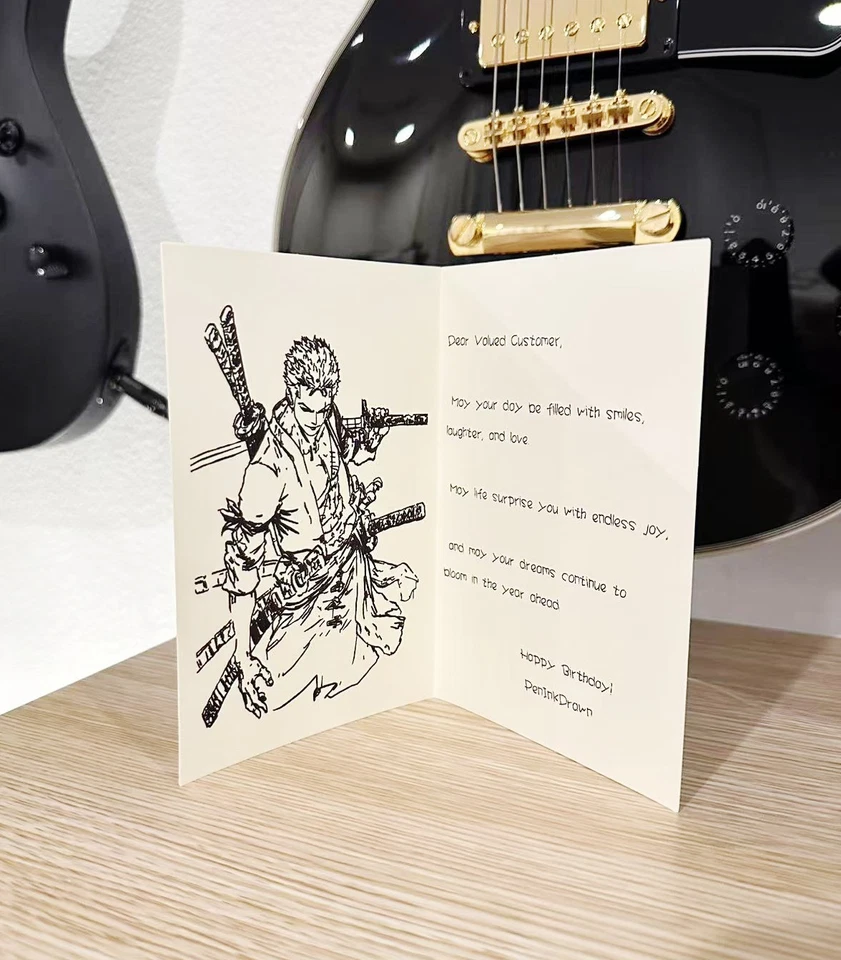 Dear Valued Customer,
May your day be filled with smiles,
laughter, and love.
May life surprise you with endless joy,
and may your dreams continue to
bloom in the year ahead
Happy Birthday!
PenInkDrawn